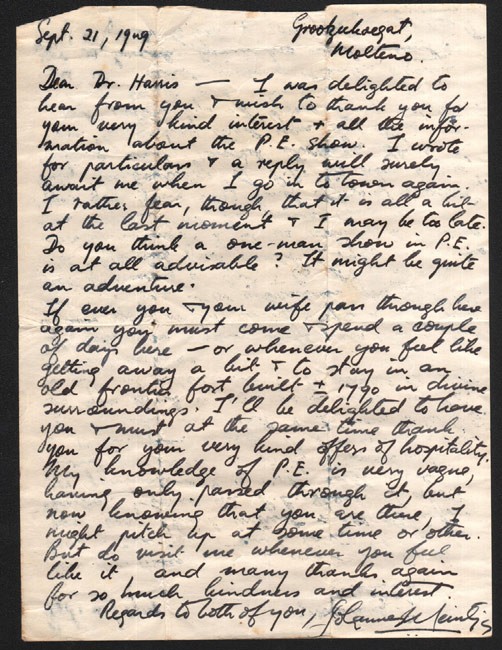 Sept. 21, 1949
Molteno.
Dear Dr. Harris — I was delighted to
hear from you & wish to thank you for
your very kind interest & all the infor-
mation about the P.E. show. I wrote
for particulars & a reply will surely
await me when I go in to town again.
I rather fear, though, that it is all a bit
at the last moment & I may be too late.
Do you think a one-man show in P.E.
is at all advisable? It might be quite
an adventure.
If ever you & your wife pass through here
again you must come & spend a couple
of days here — or whenever you feel like
getting away a bit & to stay in an
old frontier fort built ± 1790 in divine
surroundings. I'll be delighted to have
you & must at the same time thank
you for your very kind offers of hospitality.
My knowledge of P.E. is very vague,
having only passed through it, but
now knowing that you are there, I
might pitch up at some time or other.
But do visit me whenever you feel
like it and many thanks again
for so much kindness and interest.
Regards to both of you,